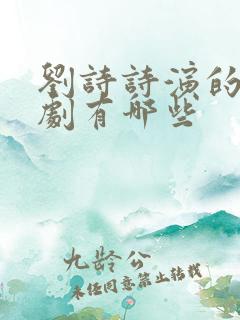 劉詩詩演的
劇有哪些
九龄公
未经同意禁止转载